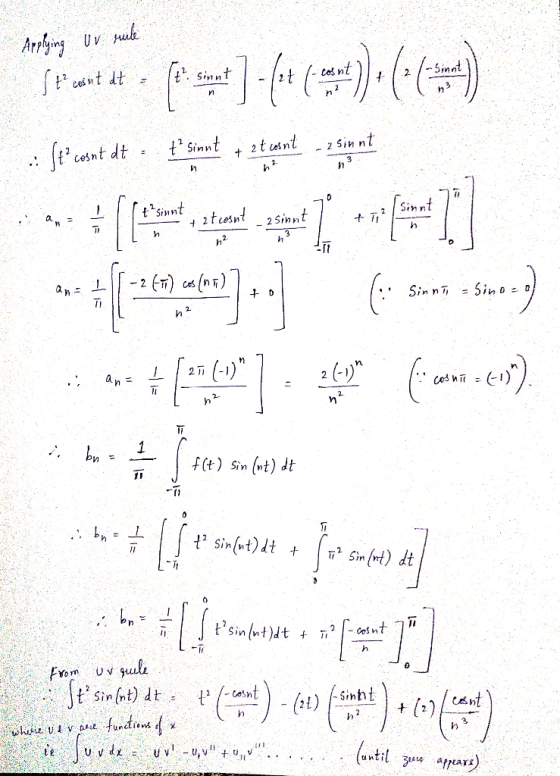 Applying UV rule
∫t² cosnt dt = [t². sinnt/n] - (2t (-cosnt/n²)) + (2 (-sinnt/n³))
∴ ∫t² cosnt dt = t² sinnt/n + 2t cosnt/n² - 2 sin nt/n³
∴ aₙ = 1/π [[t² sinnt/n + 2t cosnt/n² - 2 sinnt/n³]⁰₋π + π² [sinnt/n]^π₀]
aₙ = 1/π [[-2(-π) cos(nπ)/n²] + 0] (∵ Sin nπ = Sin 0 = 0)
∴ aₙ = 1/π [2π (-1)ⁿ/n²] = 2(-1)ⁿ/n² (∵ cosnπ = (-1)ⁿ).
∴ bₙ = 1/π ∫_{-π}^{π} f(t) sin (nt) dt
∴ bₙ = 1/π [∫_{-π}^{0} t² sin(nt) dt + ∫_{0}^{π} π² sin(nt) dt]
∴ bₙ = 1/π [∫_{-π}^{0} t² sin(nt) dt + π² [-cosnt/n]^π₀]
From UV rule
∴ ∫t² sin(nt) dt = t² (-cosnt/n) - (2t) (-sinnt/n²) + (2) (cosnt/n³)
where u & v are functions of x
ie ∫u v dx = u vᴵ - u₁vᴵᴵ + u₁₁vᴵᴵᴵ ....... (until zero appears)